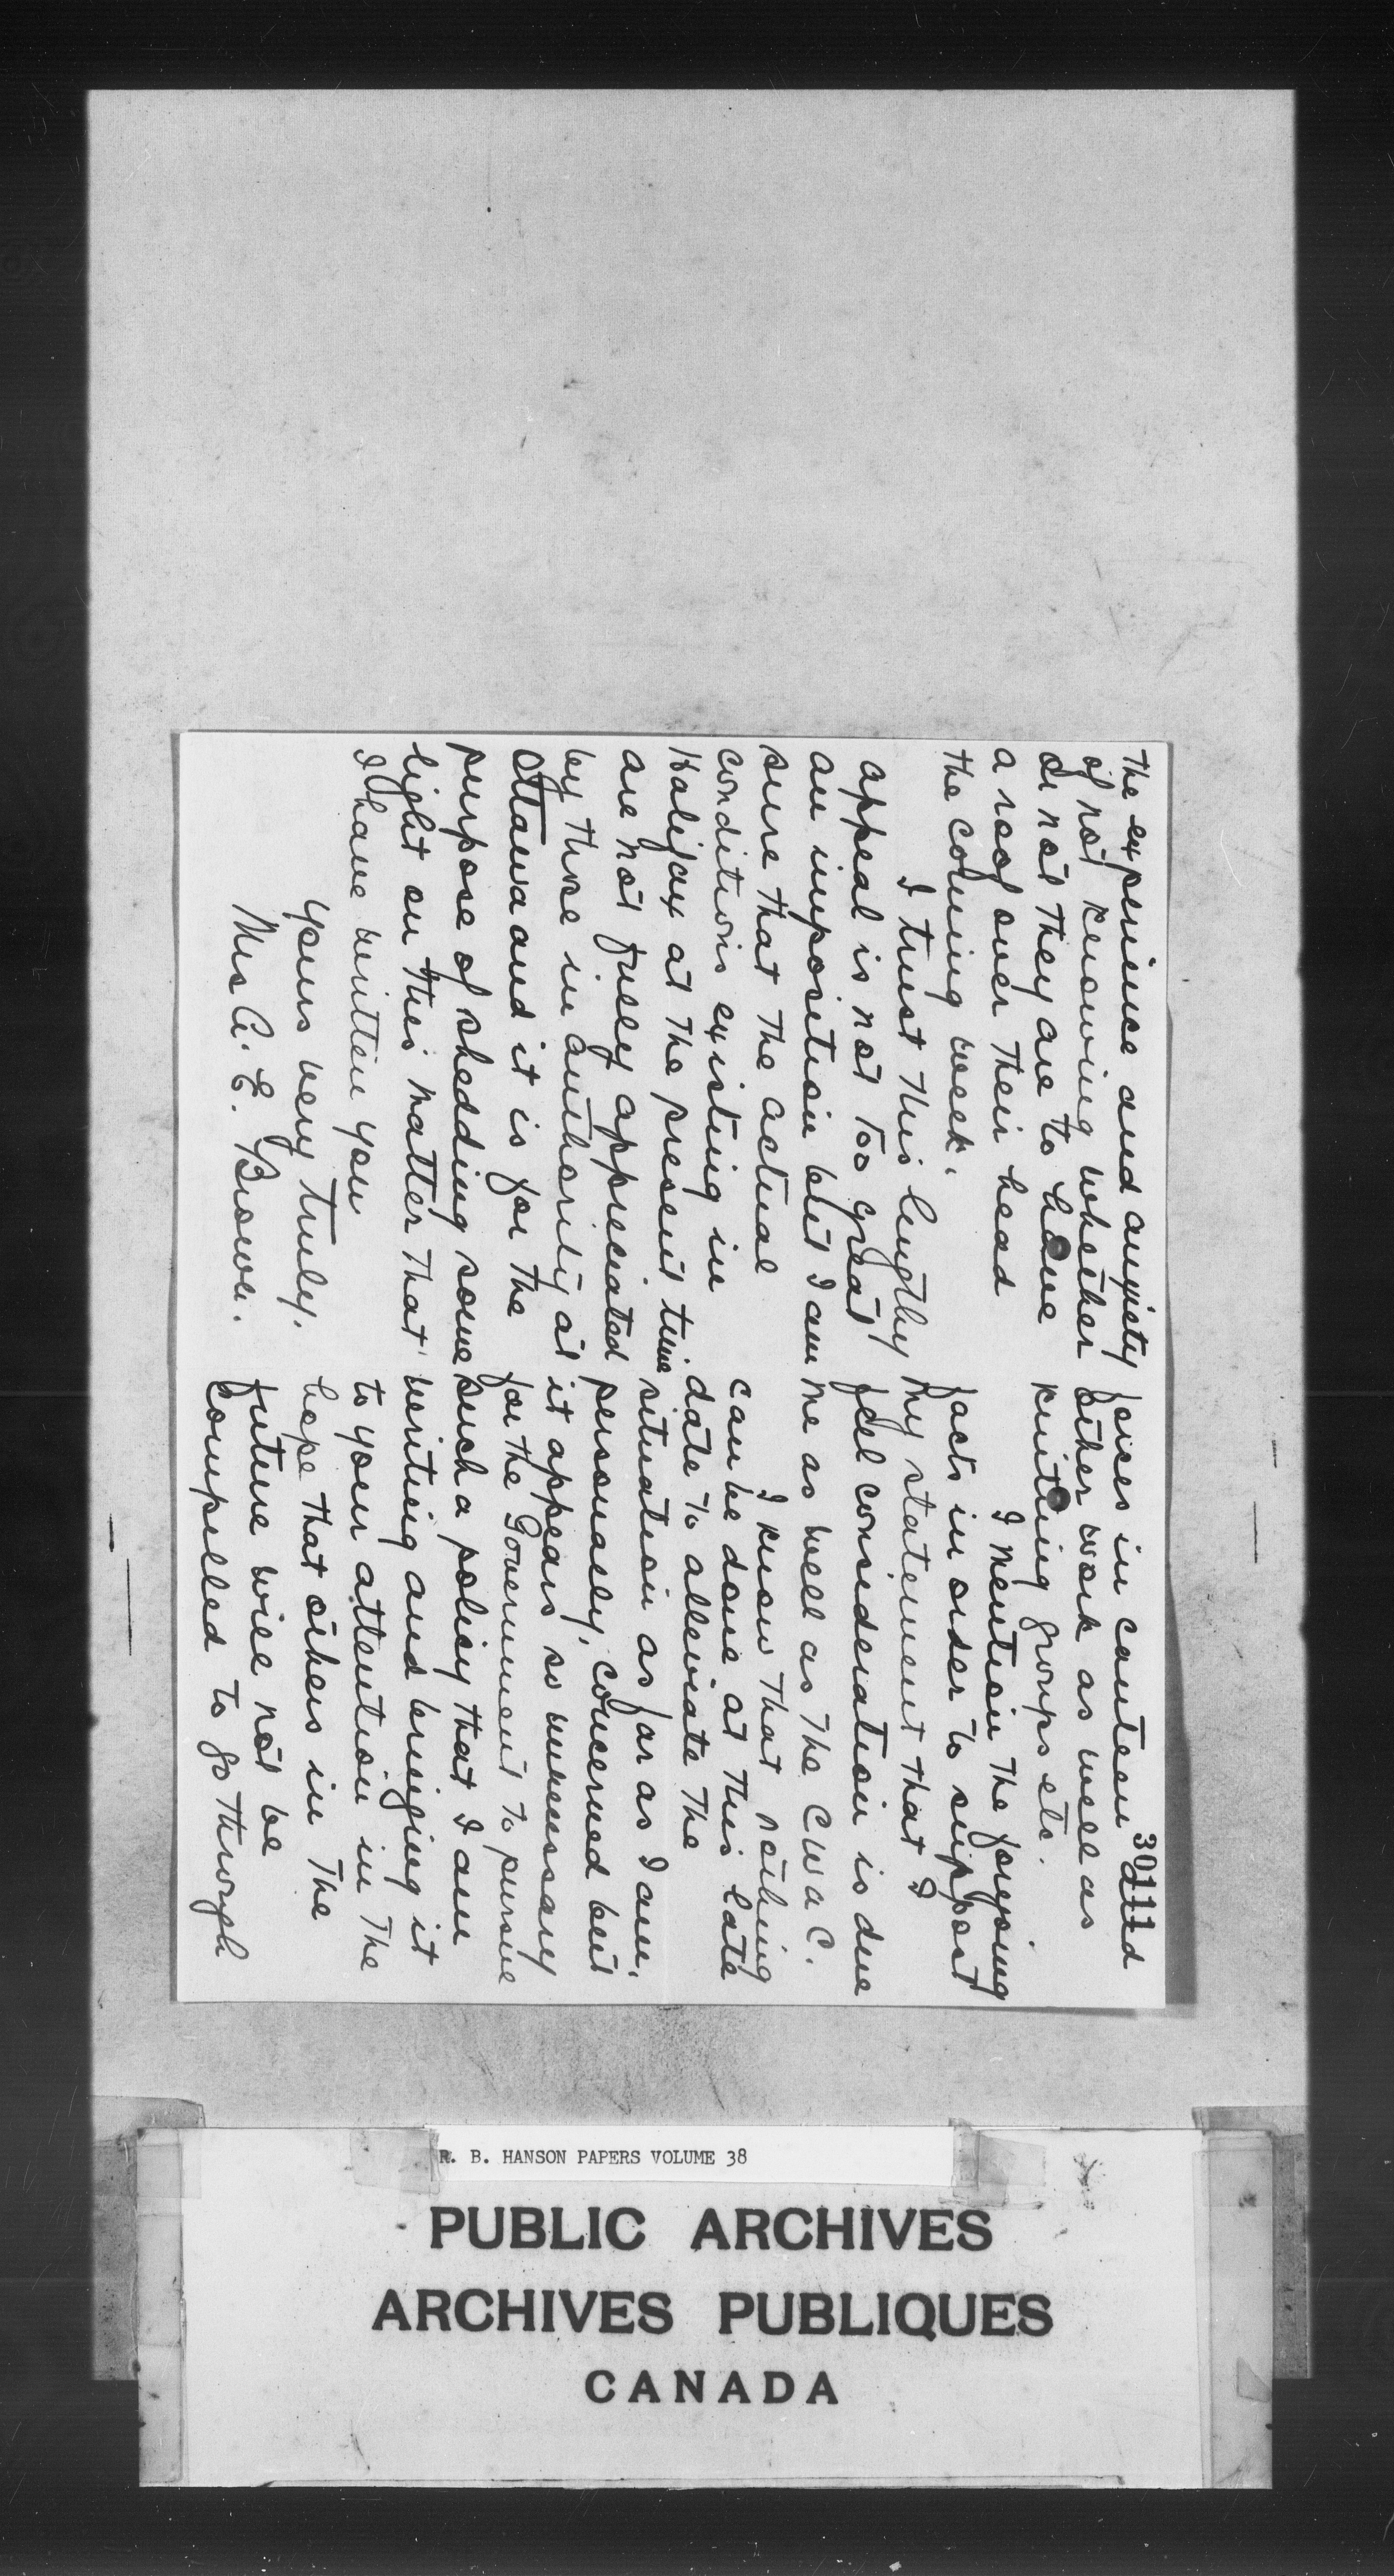 30111
forces in canteen and
other work as well as
knitting groups etc.
I mention the foregoing
facts in order to support
my statement that I
feel consideration is due
me as well as the CWAC.
I know that nothing
can be done at this late
date to alleviate the
situation as far as I am
personally, concerned but
it appears so unnecessary
for the Government to pursue
such a policy that I am
writing and bringing it
to your attention in the
hope that others in the
future will not be
compelled to go through
The experience and anxiety
of not knowing whether
or not they are to have
a roof over their head
the coming week.
I trust this lengthy
appeal is not too great
an imposition but I am
sure that the actual
conditions existing in
Halifax at the present time
are not fully appreciated
by those in authority at
Ottawa and it is for the
purpose of shedding some
light on this matter that
I have written you
Yours very truly.
Mrs A. E. Brown.
R. B. HANSON PAPERS VOLUME 38
PUBLIC ARCHIVES
ARCHIVES PUBLIQUES
CANADA